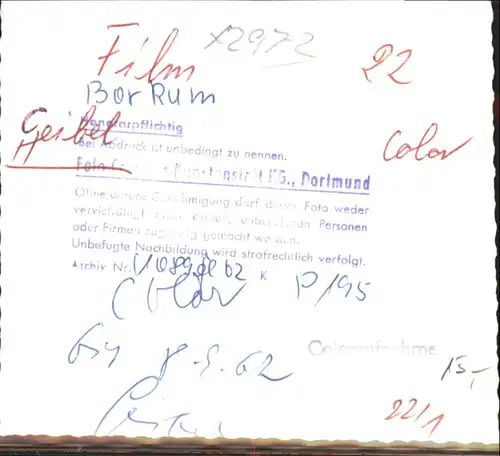 Film X2972 22
Borrum
Honorarpflichtig
Geibel
Bei Abdruck ist unbedingt zu nennen.
Color
Foto KG., Dortmund
Ohne unsere Genehmigung darf dieses Foto weder
vervielfältigt noch dritten, unberufenen Personen
oder Firmen zugängig gemacht werden.
Unbefugte Nachbildung wird strafrechtlich verfolgt.
Archiv Nr. K
Color P/195
8.5.62
Coloraufnahme
15,-
22/1